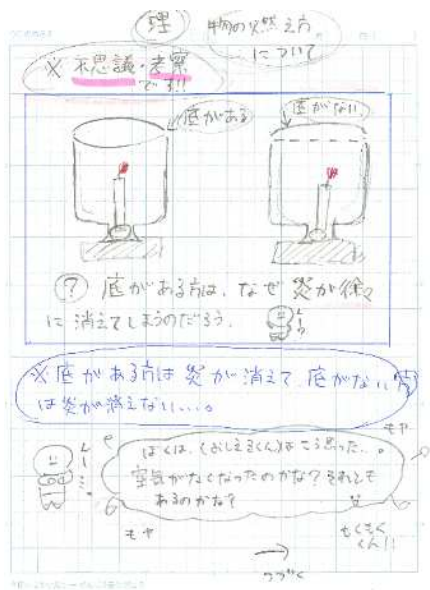 理
物の燃え方
について
※不思議・考察
です!!
底がある
底がない
? 底がある方は、なぜ炎が徐々
に消えてしまうのだろう。
※底がある方は炎が消えて、底がない方
は炎が消えない...。
モヤ
ぼくは、(おしえるくん)はこう思った...。
空気がなくなったのかな?それとも
あるのかな?
モヤ
もくもく
くん!!
つづく